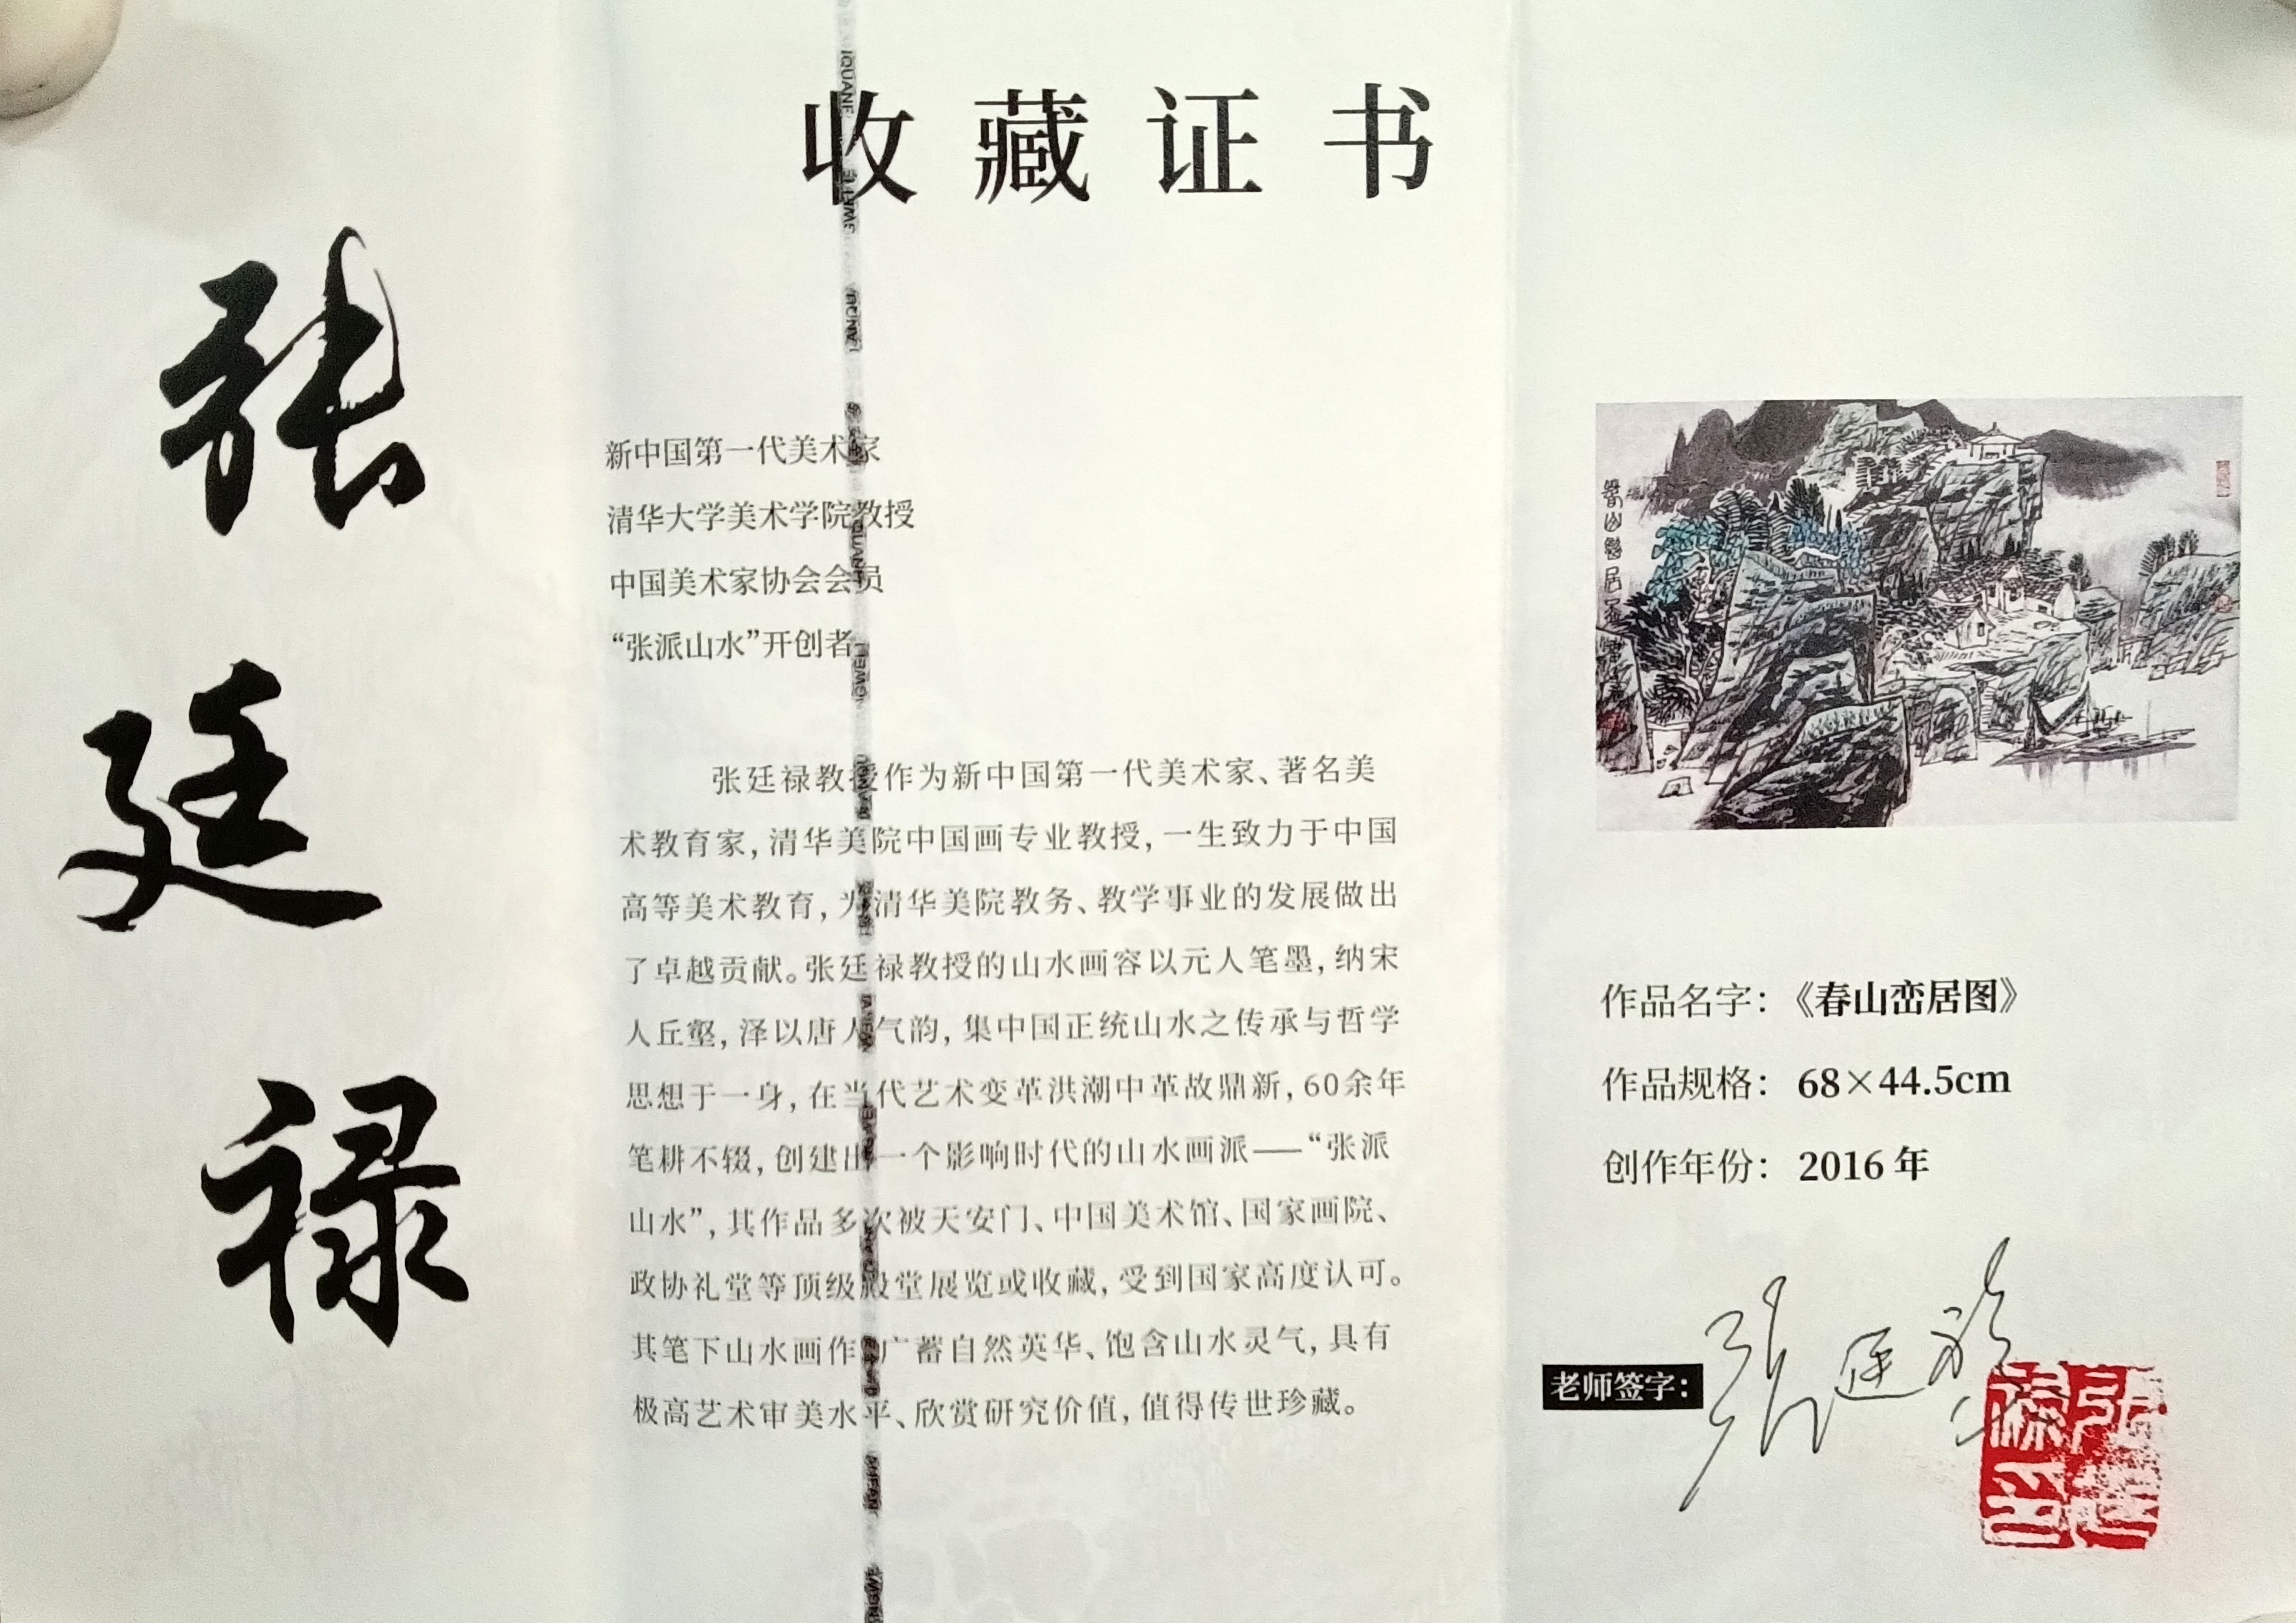 收藏证书
张
廷
禄
新中国第一代美术家
清华大学美术学院教授
中国美术家协会会员
“张派山水”开创者
张廷禄教授作为新中国第一代美术家、著名美
术教育家，清华美院中国画专业教授，一生致力于中国
高等美术教育，为清华美院教务、教学事业的发展做出
了卓越贡献。张廷禄教授的山水画容以元人笔墨，纳宋
人丘壑，泽以唐人气韵，集中国正统山水之传承与哲学
思想于一身，在当代艺术变革洪潮中革故鼎新，60余年
笔耕不辍，创建出一个影响时代的山水画派——“张派
山水”，其作品多次被天安门、中国美术馆、国家画院、
政协礼堂等顶级殿堂展览或收藏，受到国家高度认可。
其笔下山水画作广蓄自然英华、饱含山水灵气，具有
极高艺术审美水平、欣赏研究价值，值得传世珍藏。
作品名字：《春山峦居图》
作品规格：68×44.5cm
创作年份：2016年
老师签字：张廷禄